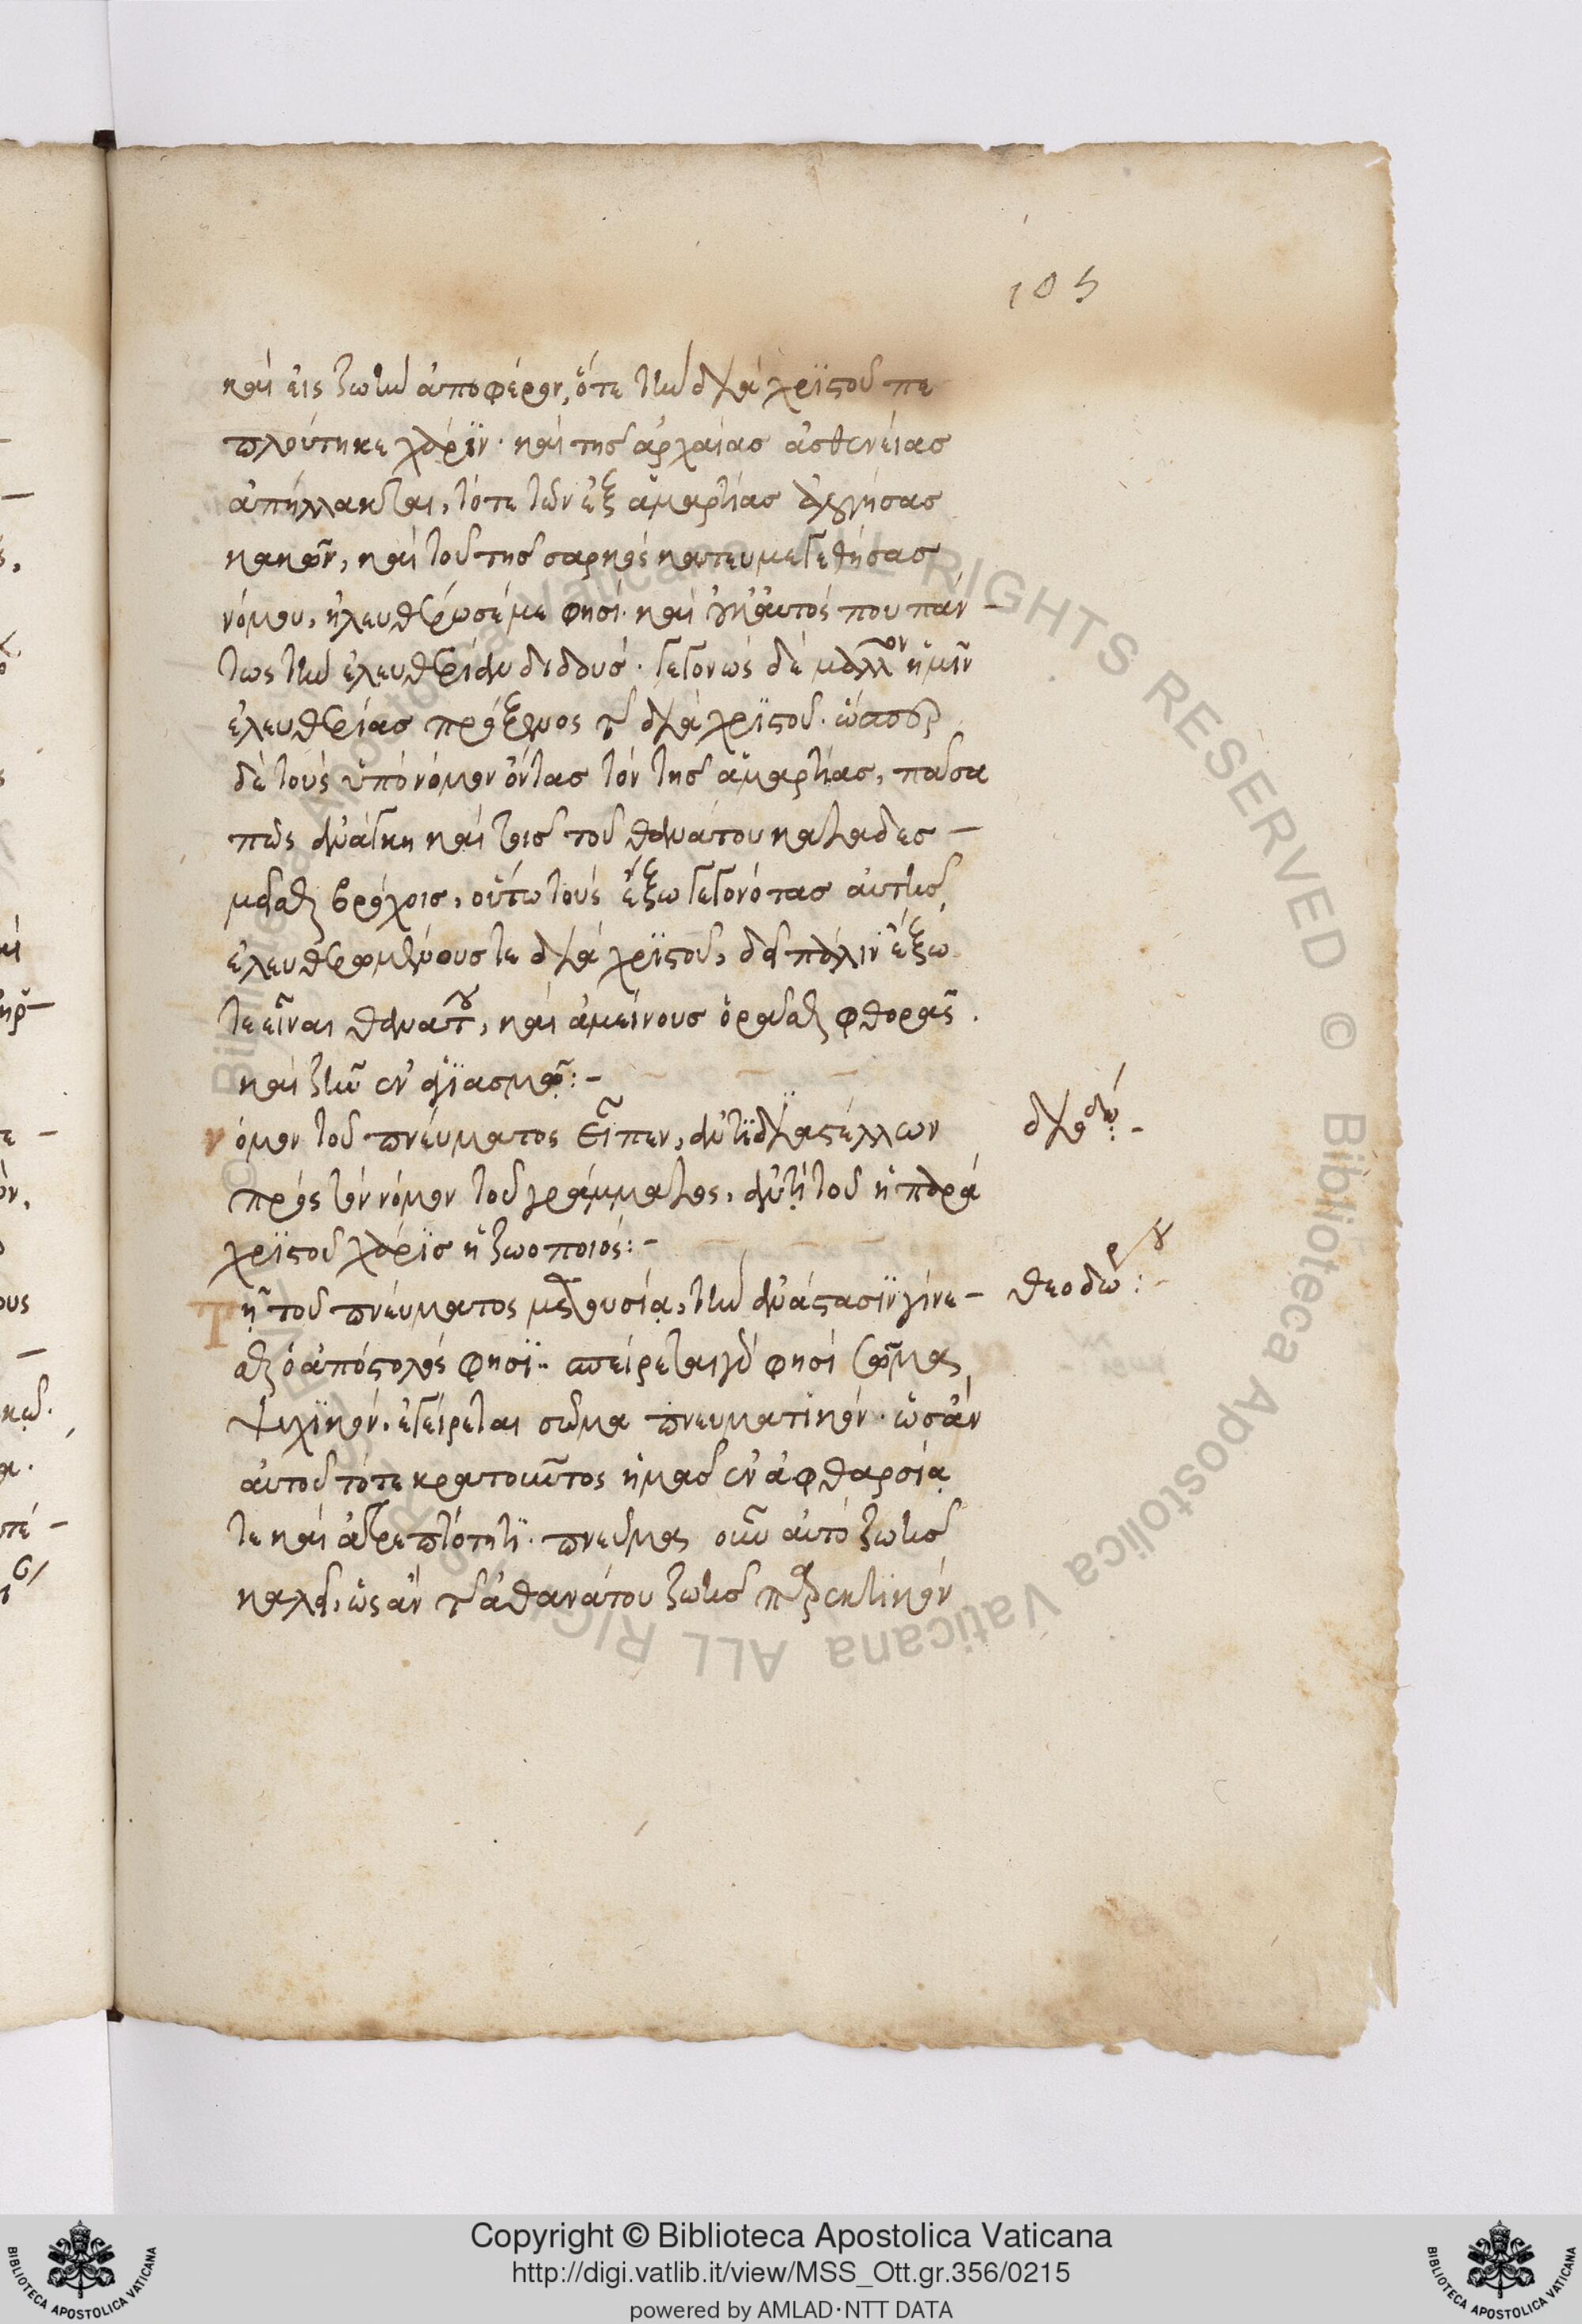 105
καὶ εἰς ζωὴν ἀποφέρον, ὅτε τὴν διὰ χριστοῦ πε
πλούτηκε χάριν· καὶ τῆς ἀρχαίας ἀσθενείας
ἀπήλλακται, τότε τῶν ἐξ ἁμαρτίας
κακῶν, καὶ τοῦ τῆς σαρκὸς κατευμεγεθήσας
νόμου, ἠλευθέρωσέ με φησί· καὶ οὐκ αὐτός που πάν-
τως τὴν ἐλευθερίαν διδούς· γεγονὼς δὲ μᾶλλον ἡμῖν
ἐλευθερίας πρόξενος τῆς διὰ χριστοῦ· ὥσπερ
δὲ τοὺς ὑπὸ νόμον ὄντας τὸν τῆς ἁμαρτίας, πᾶσά
πως ἀνάγκη καὶ τοῖς τοῦ θανάτου καταδεσ-
μεῖσθαι βρόχοις, οὕτω τοὺς ἔξω γεγονότας αὐτῆς
ἐλευθερωμένους τε διὰ χριστοῦ, δεῖ πάλιν ἔξω
τε εἶναι θανάτου, καὶ ἀμείνους ὁρᾶσθαι φθορᾶς.
καὶ ζῆν ἐν ἁγιασμῷ:-
νόμον τοῦ πνεύματος εἶπεν, ἀντιδιαστέλλων
πρὸς τὸν νόμον τοῦ γράμματος, ἀντὶ τοῦ ἡ παρὰ
χριστοῦ χάρις ἡ ζωοποιός:-
Τῇ τοῦ πνεύματος μετουσίᾳ, τὴν ἀνάστασιν γίνε-
σθαι ὁ ἀπόστολός φησιν· σπείρεται γὰρ φησὶ σῶμα
ψυχικόν, ἐγείρεται σῶμα πνευματικόν· ὡσὰν
αὐτοῦ τότε κρατοῦντος ἡμᾶς ἐν ἀφθαρσίᾳ
τε καὶ ἀτρεπτότητι· πνεῦμα οὖν αὐτὸ ζωῆς
καλεῖ, ὡς ἂν τῆς ἀθανάτου ζωῆς παρεκτικόν
Θεοδώρου:-
Copyright © Biblioteca Apostolica Vaticana
http://digi.vatlib.it/view/MSS_Ott.gr.356/0215
powered by AMLAD·NTT DATA
BIBLIOTECA APOSTOLICA VATICANA
BIBLIOTECA APOSTOLICA VATICANA
© Biblioteca Apostolica Vaticana ALL RIGHTS RESERVED